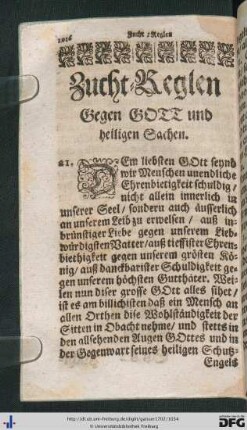 1026
Zucht-Reglen
Zucht-Reglen
Gegen GOTT und
heiligen Sachen.
21. DEm liebsten GOtt seynd
wir Menschen unendliche
Ehrenbietigkeit schuldig /
nicht allein innerlich in
unserer Seel / sondern auch äusserlich
an unserem Leib zu erweisen / auß in-
brünstiger Liebe gegen unserem Lieb-
würdigsten Vatter / auß tieffister Ehren-
biethigkeit gegen unserem grösten Kö-
nig / auß danckbarister Schuldigkeit ge-
gen unserem höchsten Gutthäter. Wei-
len nun diser grosse GOtt alles sihet /
ist es am billichisten daß ein Mensch an
allen Orthen dise Wohlständigkeit der
Sitten in Obacht nehme / und stetts in
den allsehenden Augen GOttes und in
der Gegenwart seines heiligen Schutz-
Engels
© Universitätsbibliothek Freiburg